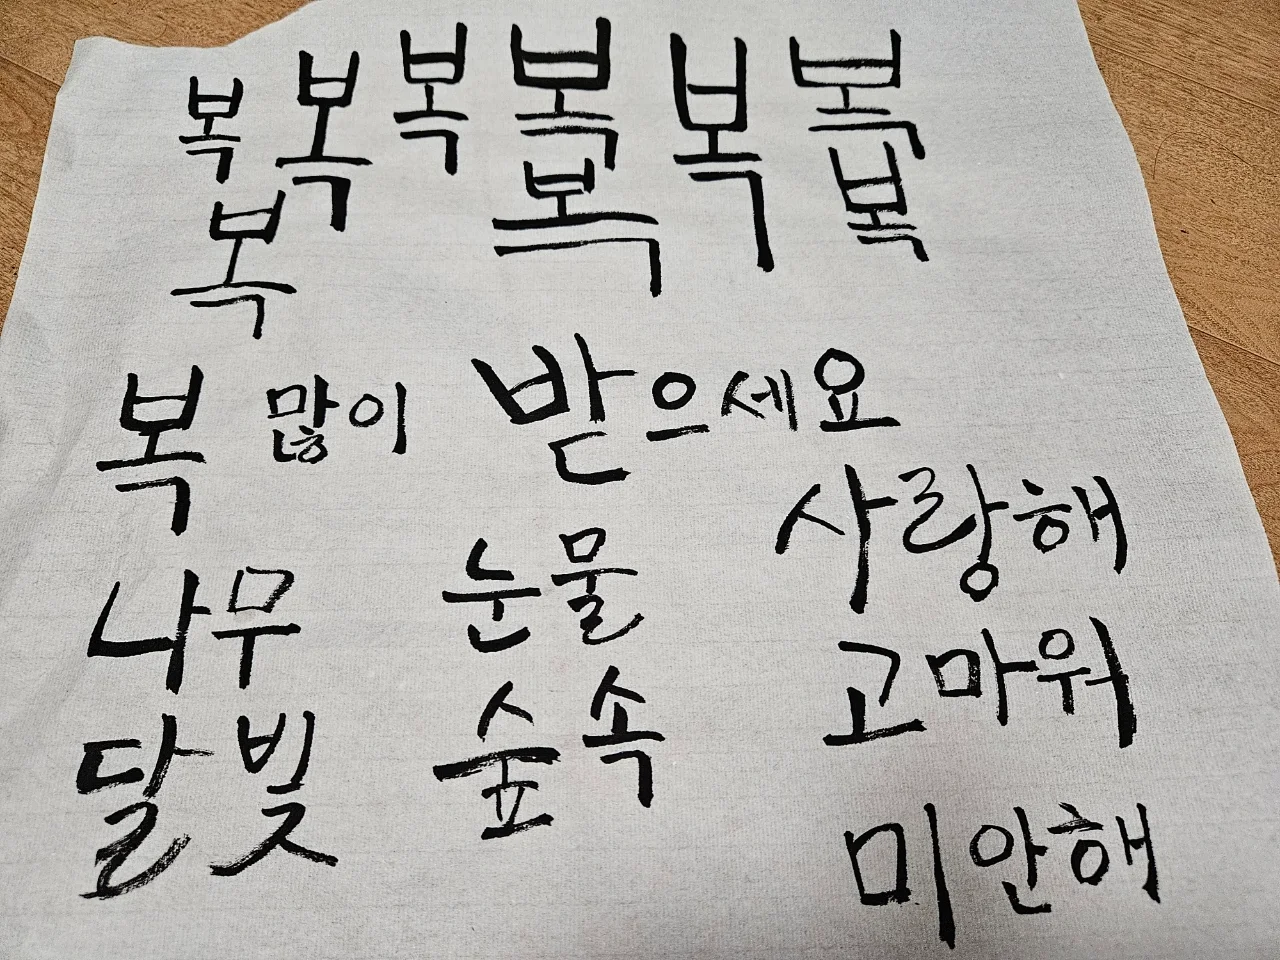 복 복 복 복 복 복
복 복 복
복 많이 받으세요
나무 눈물 사랑해
달빛 숲속 고마워
미안해